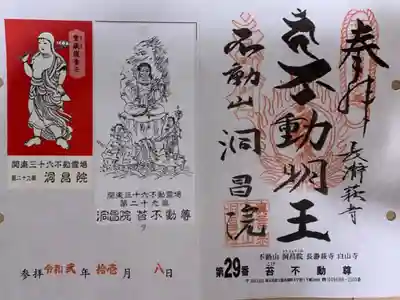 関東三十六不動霊場
第二十九番 洞昌院
関東三十六不動霊場
第二十九番
洞昌院 苔不動尊
参拝 令和弐年 拾壱月 八日
奉拝
長瀞萩寺
不動明王
不動山 洞昌院
不動山 洞昌院 長瀞萩寺
第29番 苔不動尊